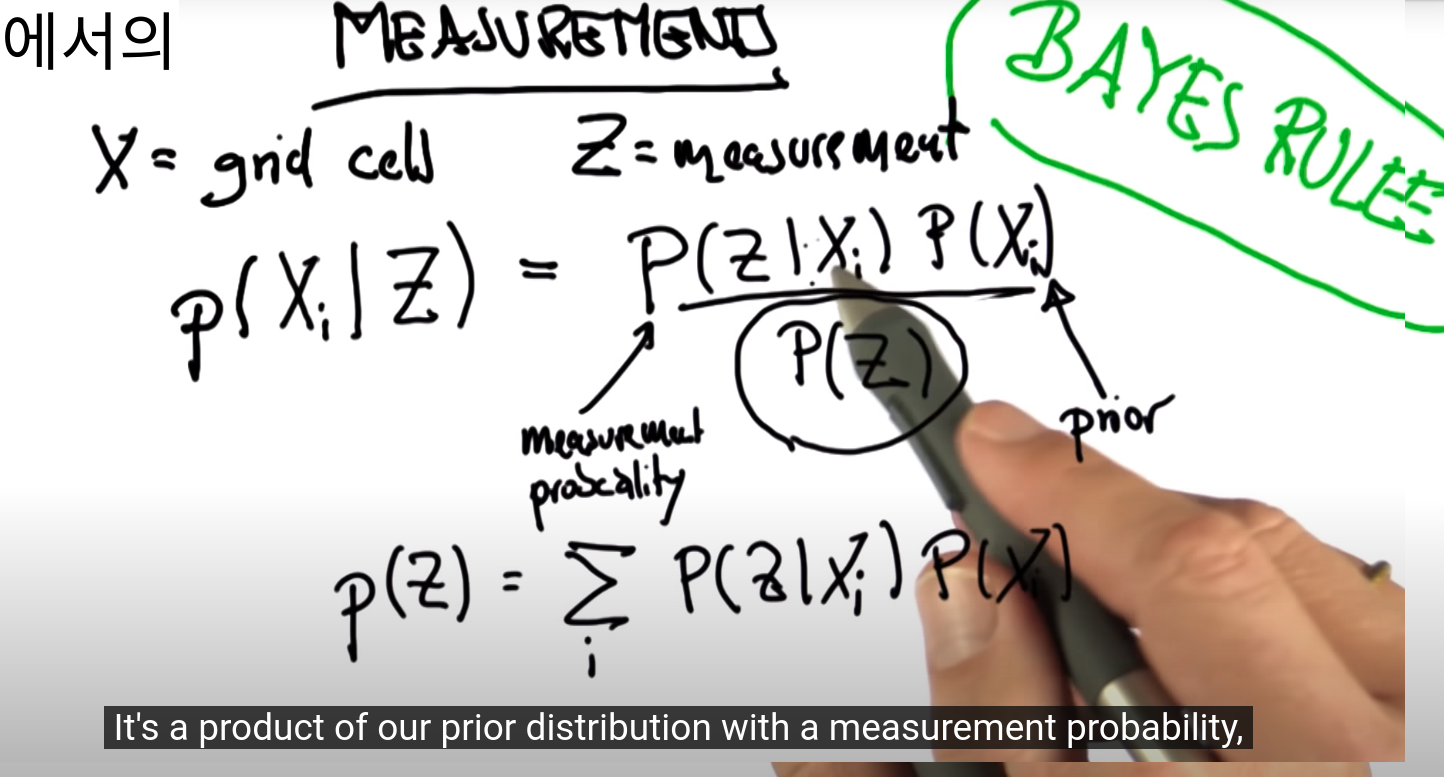 에서의
MEASUREMENTS
BAYES RULE
X = grid cell Z = measurement
p(Xi|Z) = P(Z|Xi) P(Xi)
P(Z)
measurement probability
prior
p(Z) = Σ P(Z|Xi) P(Xi)
i
It's a product of our prior distribution with a measurement probability,